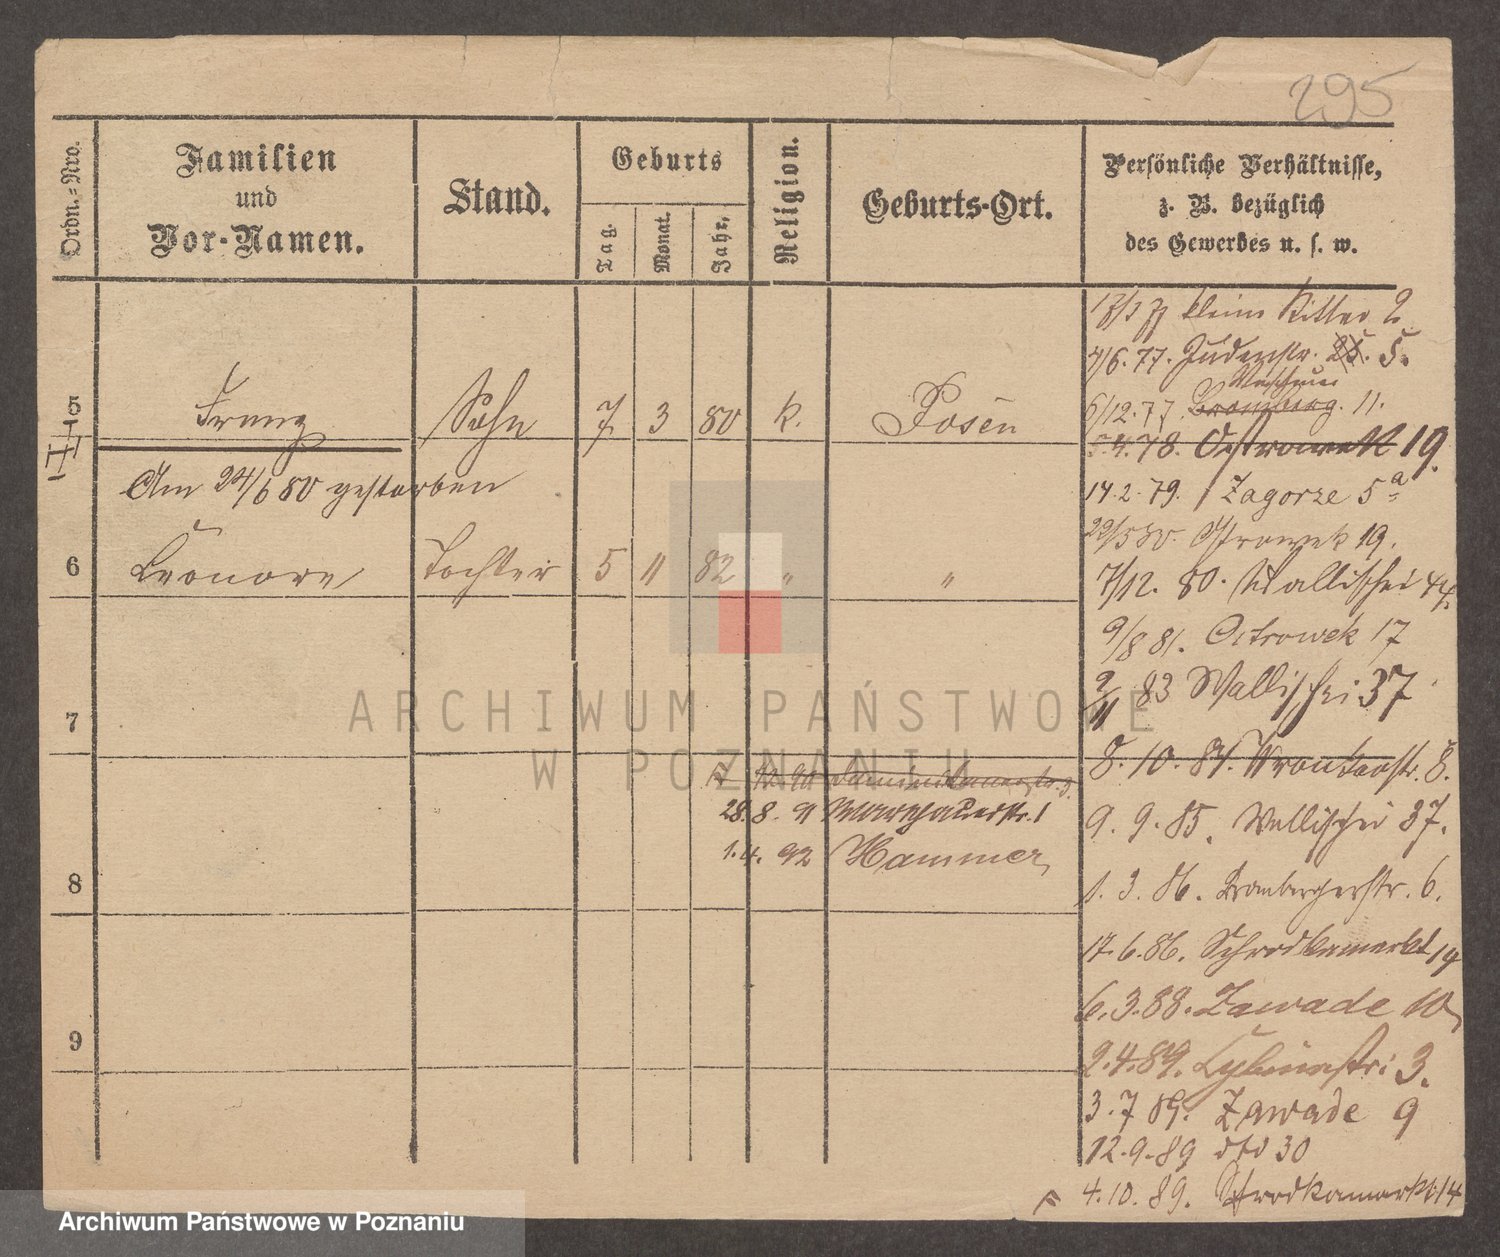 295
Ordn.=Nro.
Familien
und
Vor-Namen.
Stand.
Geburts
Tag.
Monat.
Jahr.
Religion.
Geburts-Ort.
Persönliche Verhältnisse,
z. B. bezüglich
des Gewerbes u. s. w.
klein Ritter 2
4/6. 77. Judenstr. 25. 5.
6/12. 77 Bromberg. 11.
5 Franz Sohn 7 3 80 k. Posen
4. 78. Ostrowek 19.
Am 24/6 80 gestorben
14. 2. 79. Zagorze 5 a
29/5 80. Ostrowek 19.
6 Leonore Tochter 5 11 82 " "
7/12. 80. Wallischei 44.
9/8 81. Ostrowek 17
2/11 83 Wallischei 37
7
8. 10. 84. Wronkerstr. 8.
90 Dominikanerstr. 3.
28. 8. 91 Warschauerstr. 1
9. 9. 85. Wallischei 37.
1. 4. 92 Hammer
8
1. 3. 86. Brombergerstr. 6.
17. 6. 86. Schrodkamarkt 14
6. 3. 88. Zawade 10
9
2. 4. 89. Cybinastr: 3.
3. 7 89. Zawade 9
12. 9. 89 dto 30
4. 10. 89. Schrodkamarkt 14
ARCHIWUM PAŃSTWOWE
W POZNANIU
Archiwum Państwowe w Poznaniu